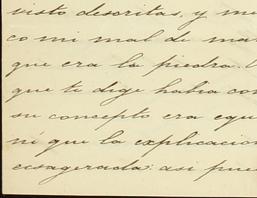 visto descritas, y me
co mi mal de ma
que era la piedra.
que te dige habia con
su concepto era equ
ni que la explicacion
ecsagerada: asi pue